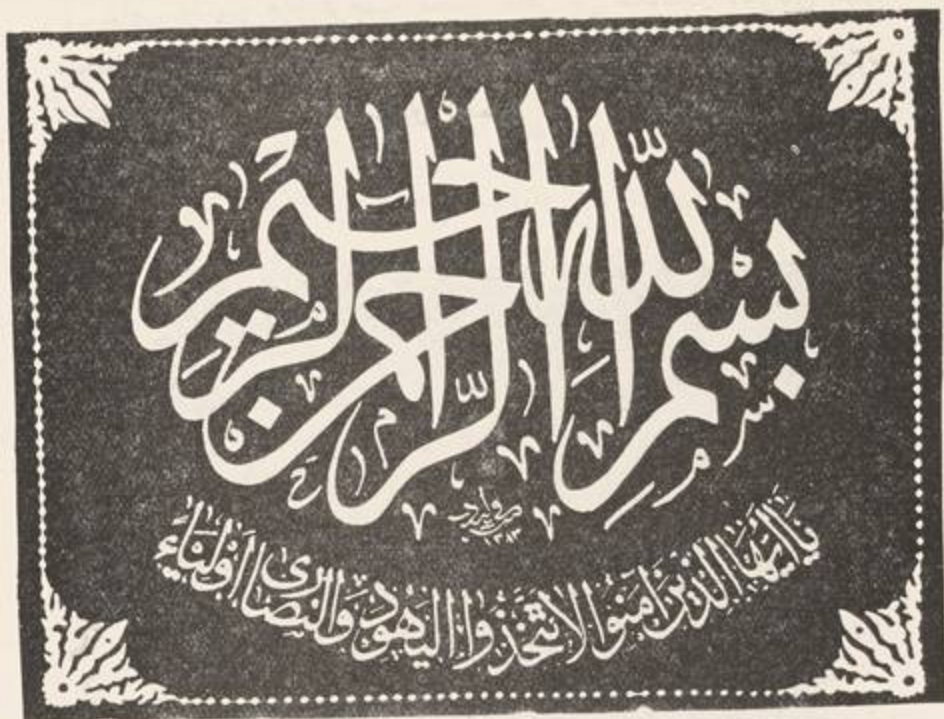 بسم الله الرحمن الرحيم
۱۳۸۳
يا ايها الذين امنوا لا تتخذوا اليهود والنصارى اولياء